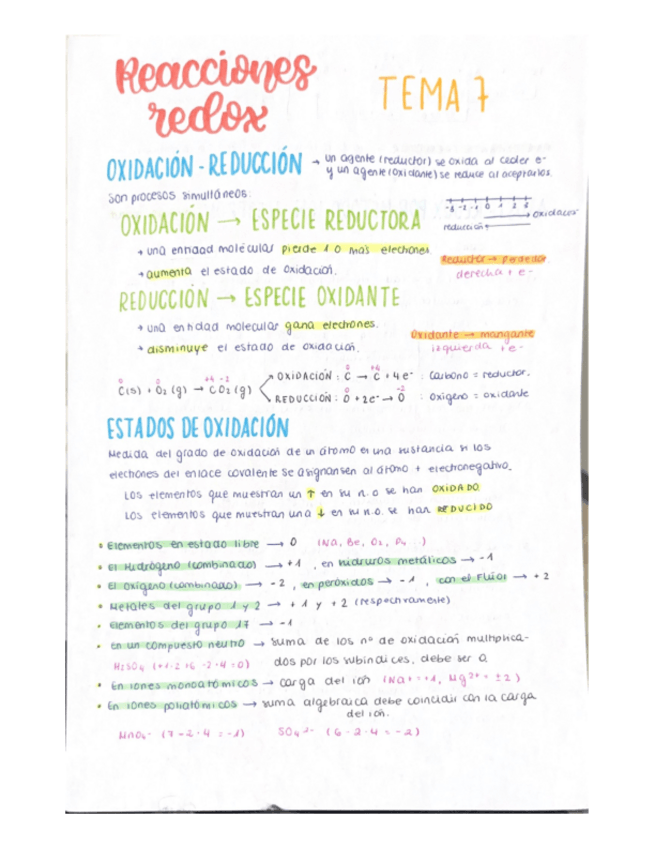 Reacciones
redox
TEMA 7
OXIDACIÓN - REDUCCIÓN → un agente (reductor) se oxida al ceder e-
y un agente (oxidante) se reduce al aceptarlos.
son procesos simultáneos.
-3 -2 -1 0 1 2 3
→ oxidación
reducción ←
OXIDACIÓN → ESPECIE REDUCTORA
→ una entidad molecular pierde 1 o más electrones.
→ aumenta el estado de oxidación.
Reductor → perdedor
derecha + e-
REDUCCIÓN → ESPECIE OXIDANTE
→ una entidad molecular gana electrones.
→ disminuye el estado de oxidación.
Oxidante → mangante
izquierda + e-
0 0 +4 -2
C(s) + O2 (g) → CO2 (g)
OXIDACIÓN : C → C + 4e- : Carbono = reductor.
REDUCCIÓN : O + 2e- → O : Oxígeno = oxidante
ESTADOS DE OXIDACIÓN
Medida del grado de oxidación de un átomo en una sustancia si los
electrones del enlace covalente se asignansen al átomo + electronegativo.
Los elementos que muestran un ↑ en su n.o se han OXIDADO
Los elementos que muestran una ↓ en su n.o. se han REDUCIDO
• Elementos en estado libre → 0 (Na, Be, O2, P4 )
• El Hidrógeno (combinado) → +1 , en hidruros metálicos → -1
• El oxígeno (combinado) → -2 , en peróxidos → -1 , con el Flúor → +2
• Metales del grupo 1 y 2 → +1 y +2 (respectivamente)
• Elementos del grupo 17 → -1
• En un compuesto neutro → suma de los nº de oxidación multiplica-
H2SO4 (+1·2 +6 -2·4 = 0) dos por los subíndices, debe ser 0
• En iones monoatómicos → carga del ion (Na+ = +1, Mg2+ = +2)
• En iones poliatómicos → suma algebraica debe coincidir con la carga
del ion.
MnO4- (7 - 2·4 = -1) SO4 2- (6 - 2·4 = -2)